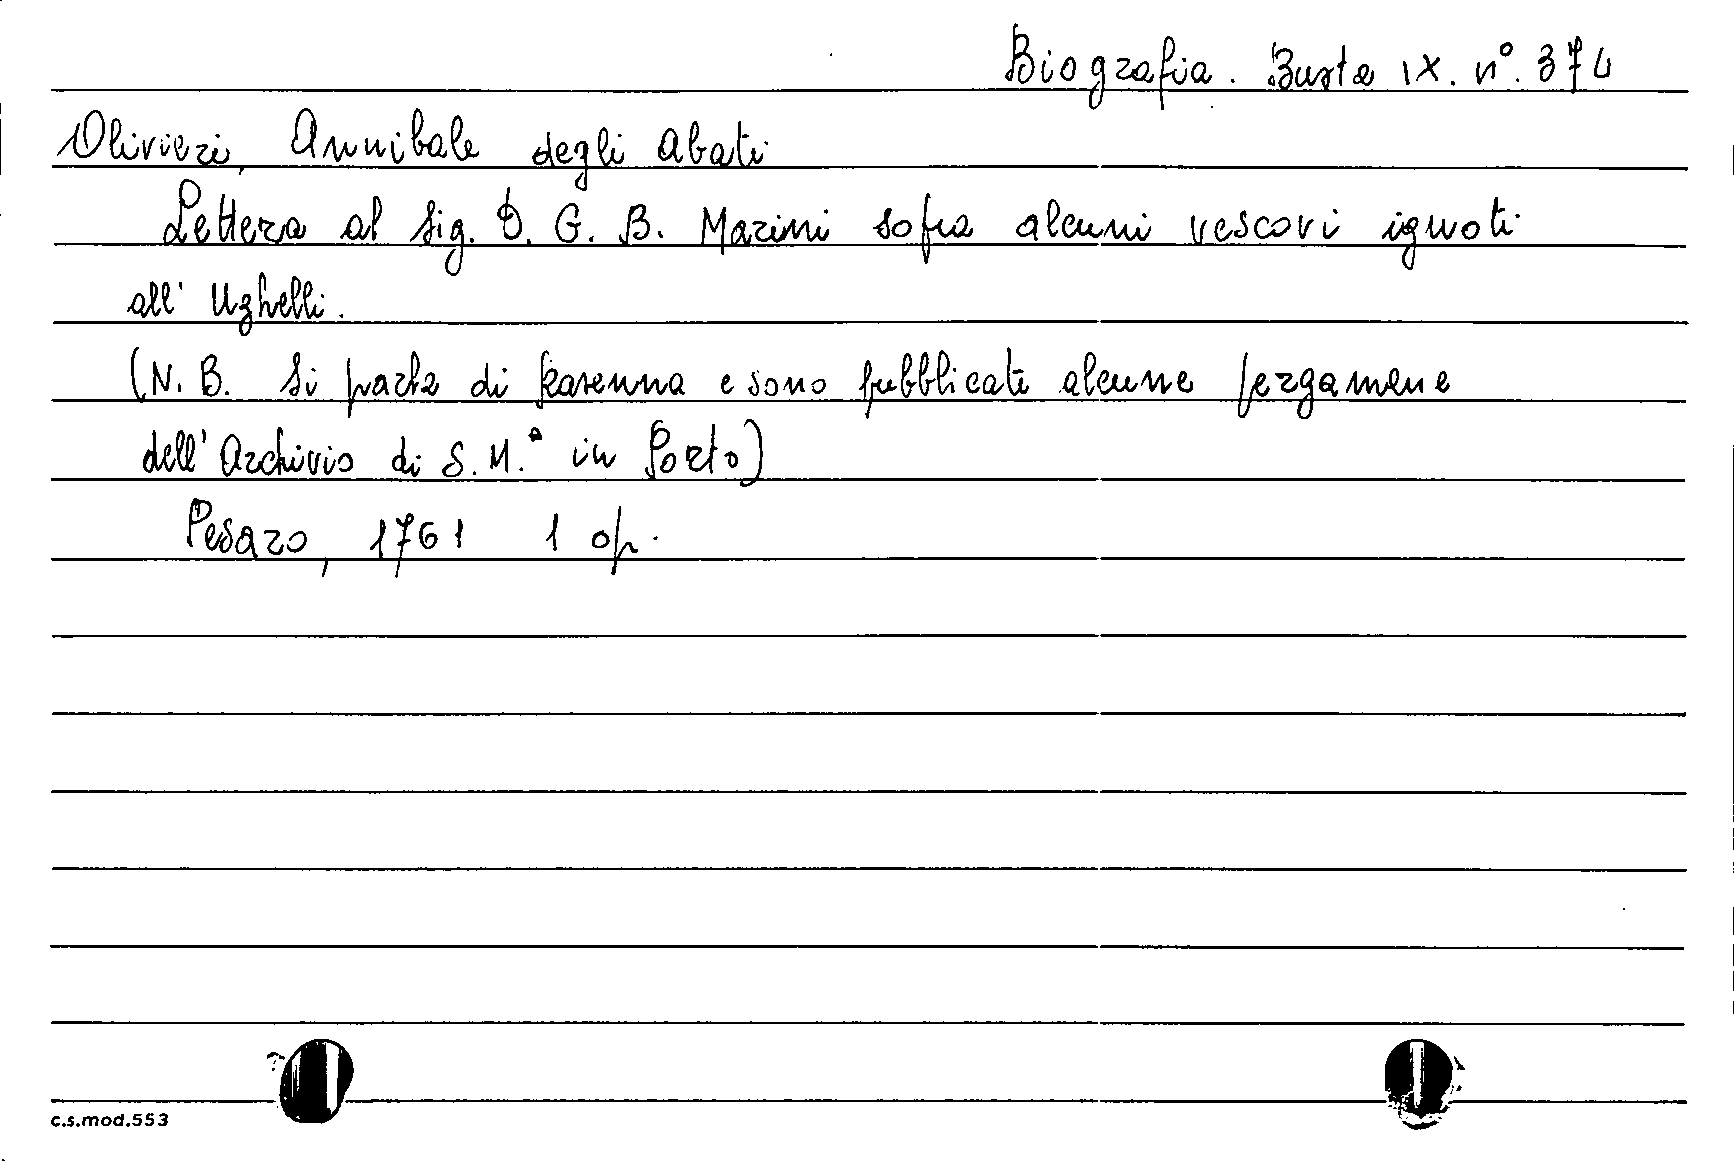 Biografia. Busta IX. n°. 374
Olivieri, Annibale degli Abati
Lettera al Sig. D. G. B. Marini sopra alcuni vescovi ignoti
all' Ughelli.
(N. B. Si parla di Ravenna e sono pubblicate alcune pergamene
dell'Archivio di S. M.ª in Porto)
Pesaro, 1761 1 op.
c.s.mod.553